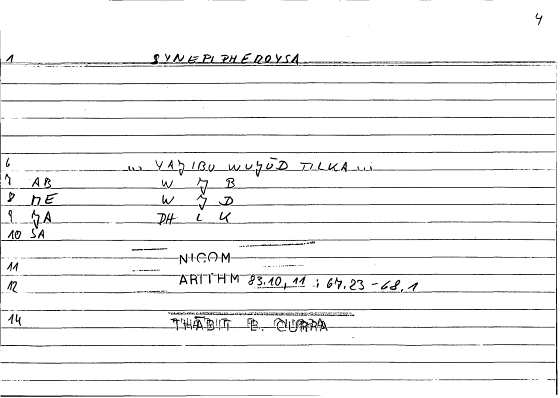 4
1 SYNEPIPHEROYSA
6 ... YAJIBU WUJŪD TILKA ...
7 AB W J B
8 ME W J D
9 JA DH L K
10 SA
NICOM
11
ARITHM 83.10, 11 : 67.23 - 68.1
12
14 THĀBIT B. QURRA